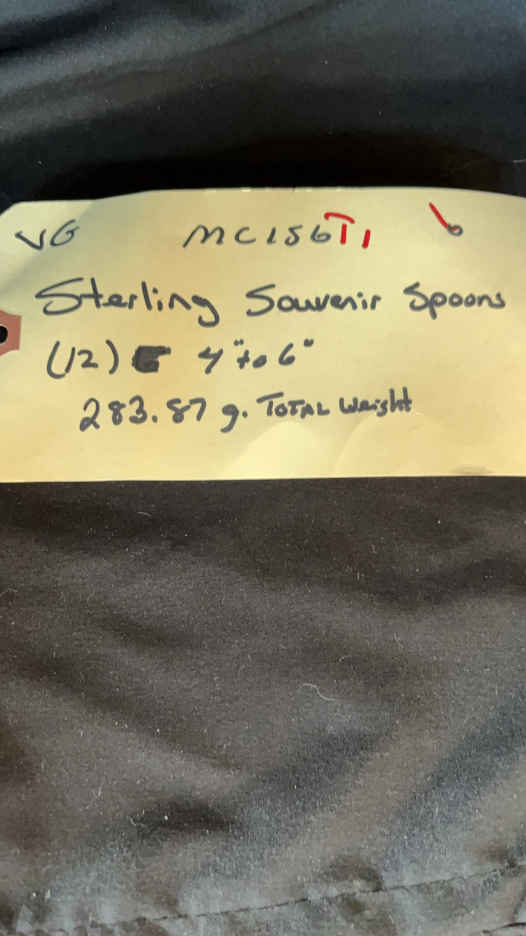 VG MC156T1 6
Sterling Souvenir Spoons
(12) 4" to 6"
283.87 g. TOTAL Weight